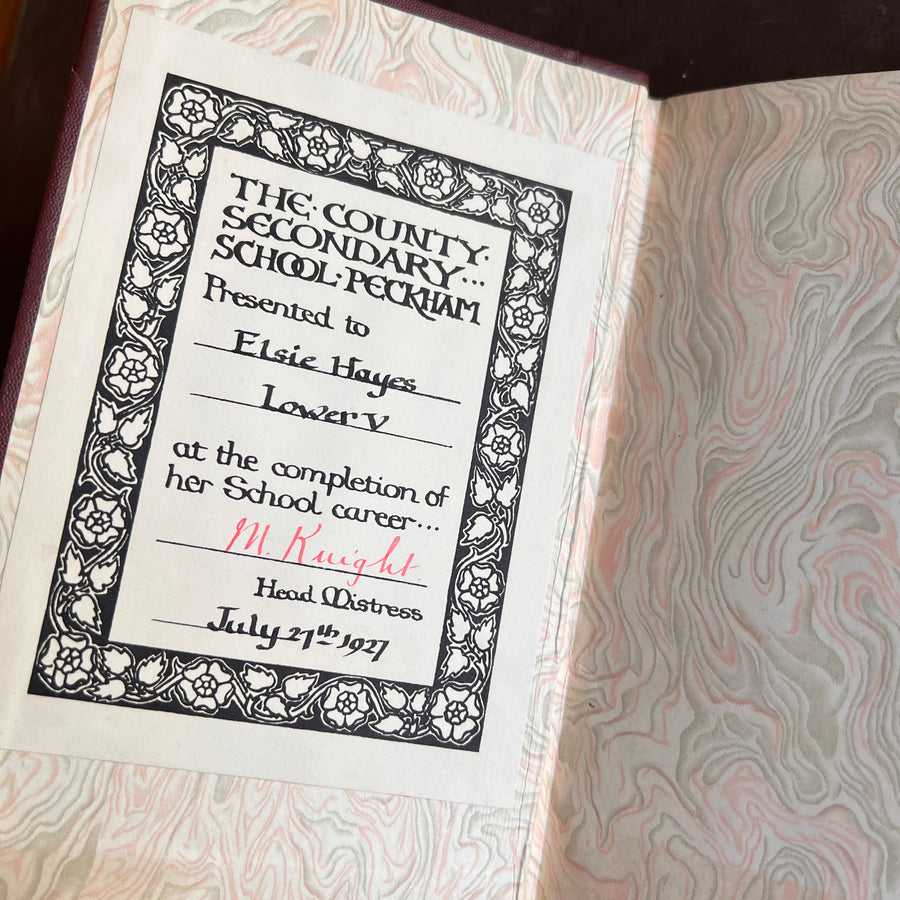 THE·COUNTY·
SECONDARY...
SCHOOL·PECKHAM
Presented to
Elsie Hayes
Lower V
at the completion of
her School career...
M. Knight.
Head Mistress
July 27th 1927